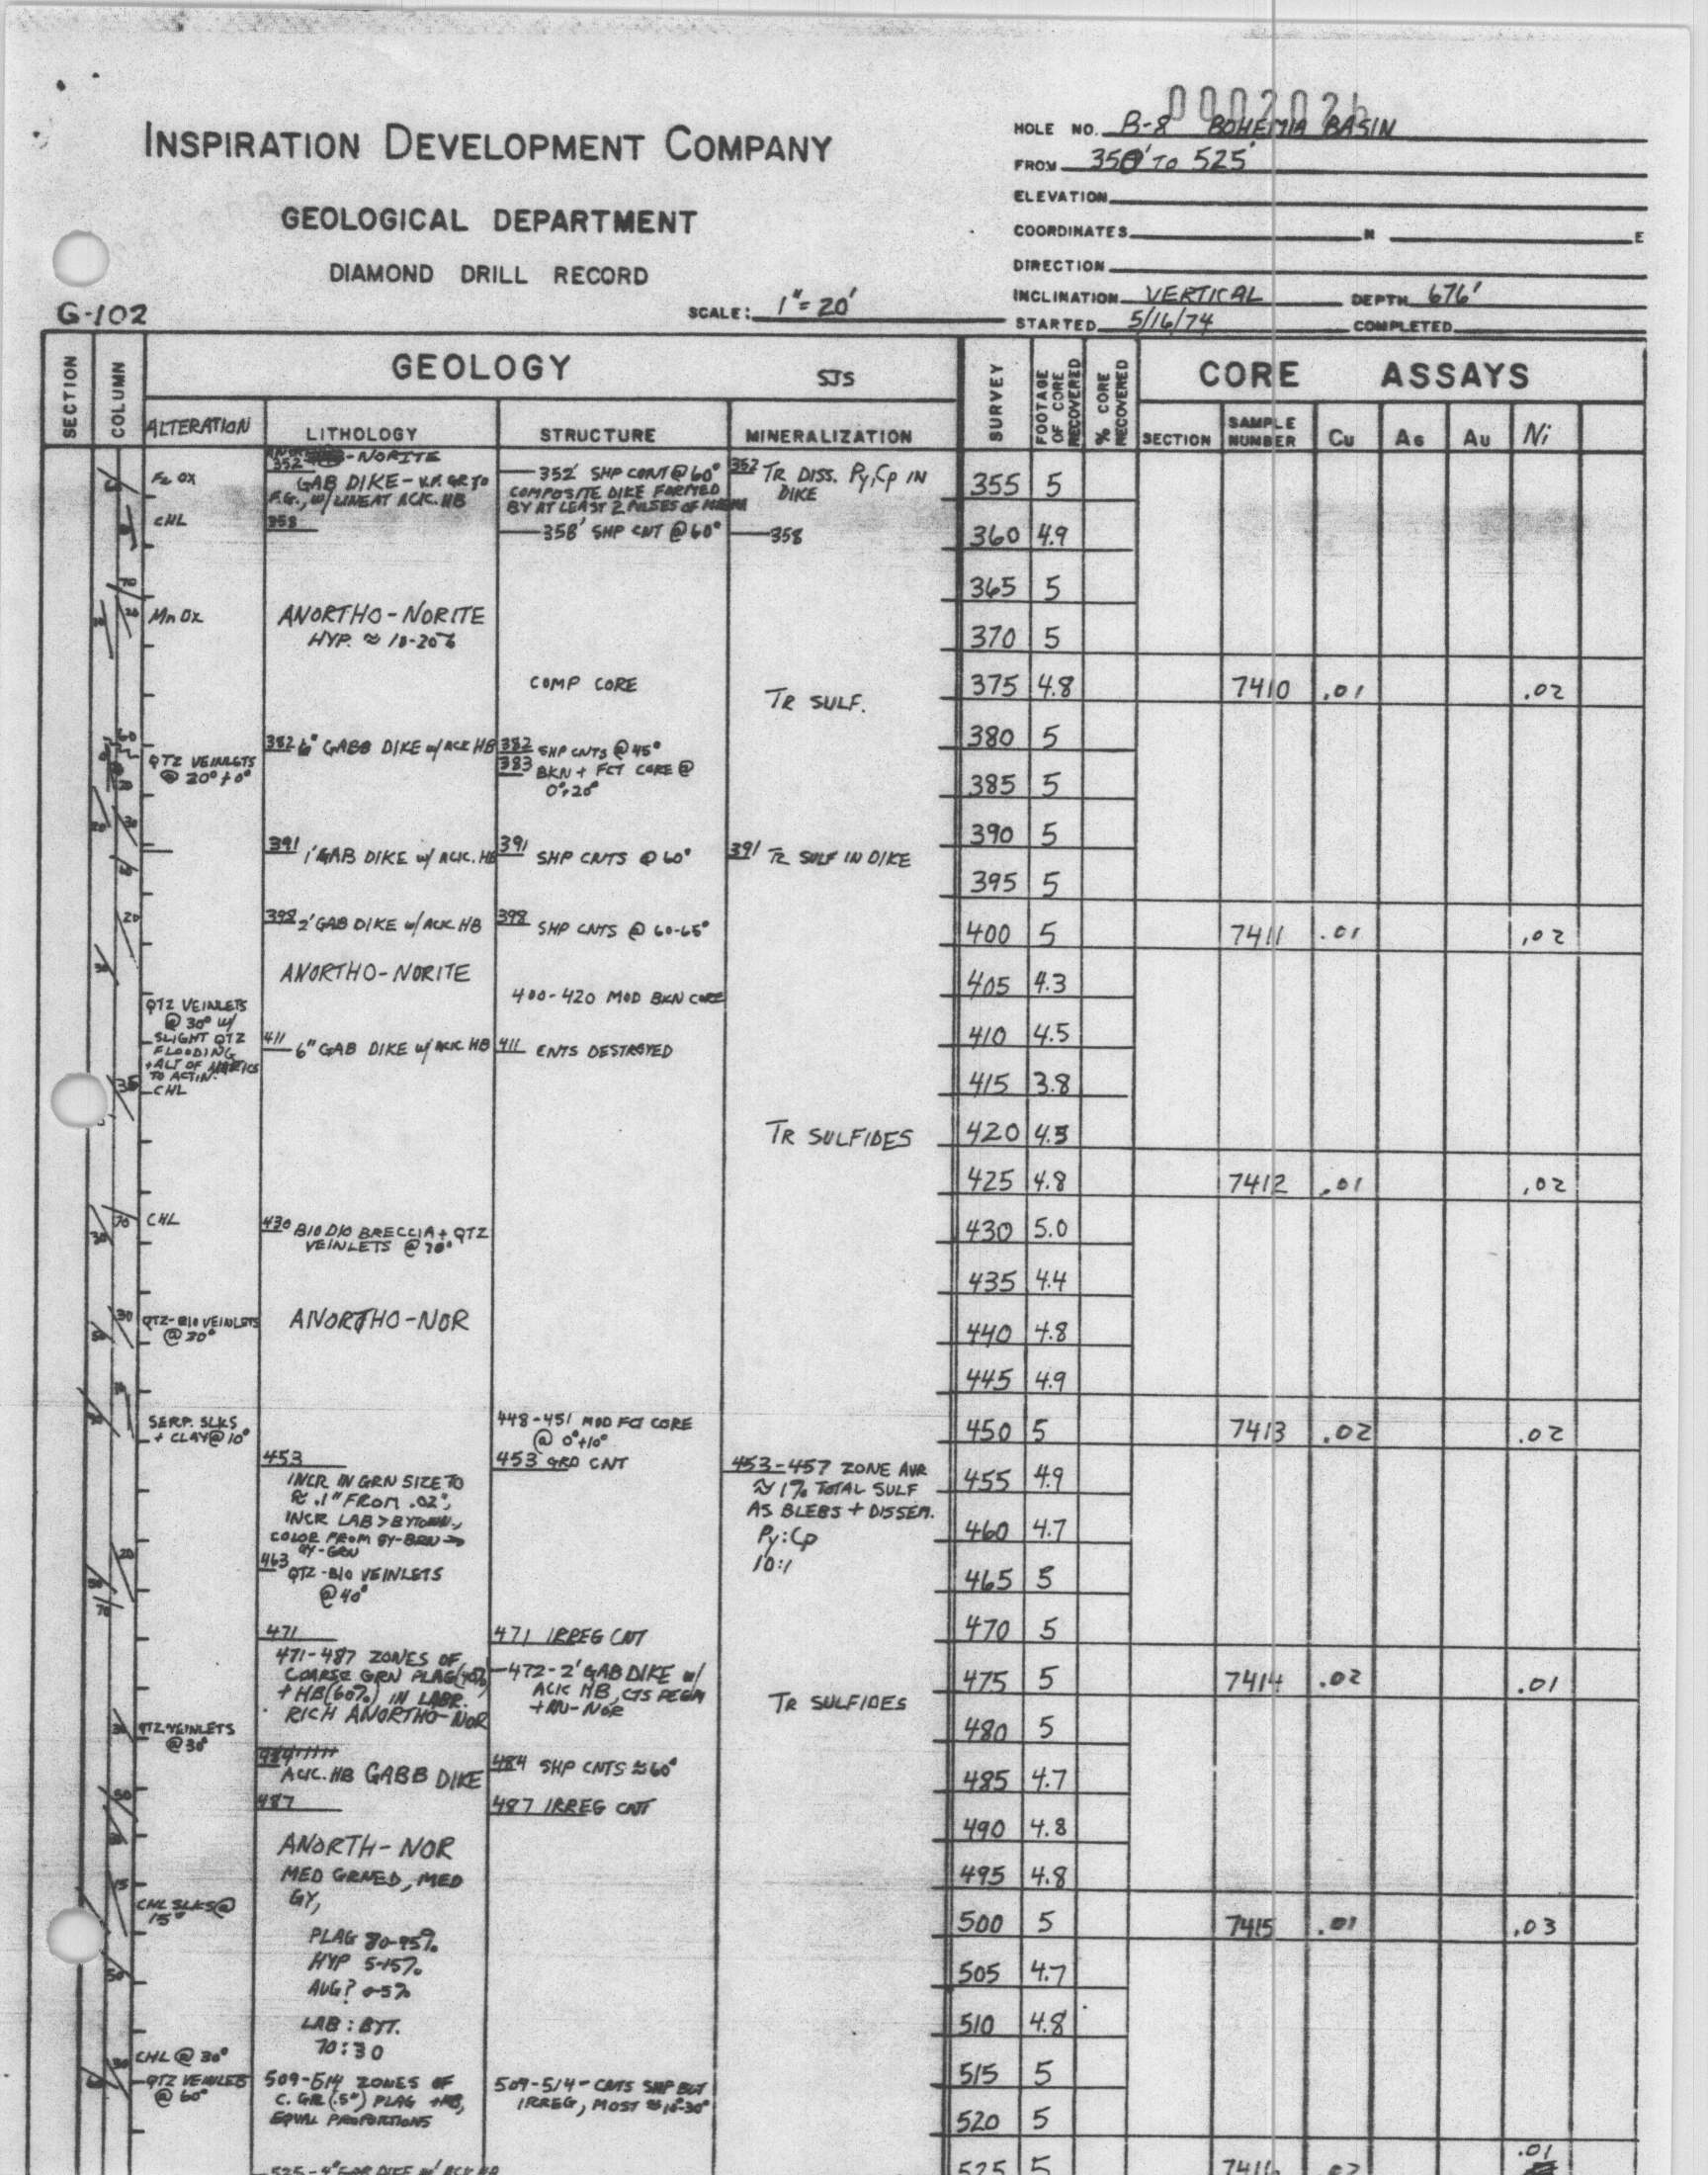 INSPIRATION DEVELOPMENT COMPANY
GEOLOGICAL DEPARTMENT
DIAMOND DRILL RECORD
G-102
SCALE: 1"=20'
HOLE NO. B-8 BOHEMIA BASIN
FROM 350' TO 525'
ELEVATION
COORDINATES N E
DIRECTION
INCLINATION VERTICAL DEPTH 676'
STARTED 5/16/74 COMPLETED
SECTION
COLUMN
GEOLOGY SJS
ALTERATION
LITHOLOGY
STRUCTURE
MINERALIZATION
SURVEY
FOOTAGE OF CORE RECOVERED
% CORE RECOVERED
CORE ASSAYS
SECTION
SAMPLE NUMBER
Cu
AG
AU
Ni
Fe OX
CHL
Mn OX
QTZ VEINLETS
@ 20° + 0°
QTZ VEINLETS
@ 30° W/
SLIGHT QTZ
FLOODING
+ ALT OF MAFICS
TO ACTIN.
CHL
CHL
QTZ-BIO VEINLETS
@ 20°
SERP. SLKS
+ CLAY @ 10°
QTZ VEINLETS
@ 30°
CHL SLKS @
15°
CHL @ 30°
QTZ VEINLETS
@ 60°
352 -NORITE
GAB DIKE - V.F. GR TO
F.G., W/ LINEAT ACIC. HB
358
ANORTHO-NORITE
HYP. ≈ 10-20%
382 6" GABB DIKE W/ ACIC HB
391 1' GAB DIKE W/ ACIC. HB
398 2' GAB DIKE W/ ACIC HB
ANORTHO-NORITE
411 6" GAB DIKE W/ ACIC HB
430 BIO DIO BRECCIA + QTZ
VEINLETS @ 70°
ANORTHO-NOR
453
INCR IN GRN SIZE TO
≈ .1" FROM .02",
INCR LAB > BYTOWN.,
COLOR FROM GY-BRN →
GY-GRN
463 QTZ-BIO VEINLETS
@ 40°
471
471-487 ZONES OF
COARSE GRN PLAG (40%)
+ HB (60%) IN LABR.
RICH ANORTHO-NOR
484
ACIC. HB GABB DIKE
487
ANORTH-NOR
MED GRNED, MED
GY,
PLAG 80-95%
HYP 5-15%
AUG? 0-5%
LAB : BYT.
70:30
509-514 ZONES OF
C. GR (.5") PLAG + HB,
EQUAL PROPORTIONS
525-4" GAB DIKE W/ ACIC HB
352' SHP CONT @ 60°
COMPOSITE DIKE FORMED
BY AT LEAST 2 PULSES OF MAGMA
358' SHP CNT @ 60°
COMP CORE
382 SHP CNTS @ 45°
383 BKN + FCT CORE @
0°+20°
391 SHP CNTS @ 60°
398 SHP CNTS @ 60-65°
400-420 MOD BKN CORE
411 CNTS DESTROYED
448-451 MOD FCT CORE
@ 0°+10°
453 GRD CNT
471 IRREG CNT
472-2' GAB DIKE W/
ACIC HB, CTS PEGM
+ NOR
484 SHP CNTS ≈ 60°
487 IRREG CNT
509-514 - CNTS SHP BUT
IRREG, MOST ≈ 10-30°
352 TR DISS. Py, Cp IN
DIKE
358
TR SULF.
391 TR SULF IN DIKE
TR SULFIDES
453-457 ZONE AVR
≈ 1% TOTAL SULF
AS BLEBS + DISSEM.
Py:Cp
10:1
TR SULFIDES
355 5
360 4.9
365 5
370 5
375 4.8 7410 .01 .02
380 5
385 5
390 5
395 5
400 5 7411 .01 .02
405 4.3
410 4.5
415 3.8
420 4.5
425 4.8 7412 .01 .02
430 5.0
435 4.4
440 4.8
445 4.9
450 5 7413 .02 .02
455 4.9
460 4.7
465 5
470 5
475 5 7414 .02 .01
480 5
485 4.7
490 4.8
495 4.8
500 5 7415 .01 .03
505 4.7
510 4.8
515 5
520 5
525 5 7416 .02 .01